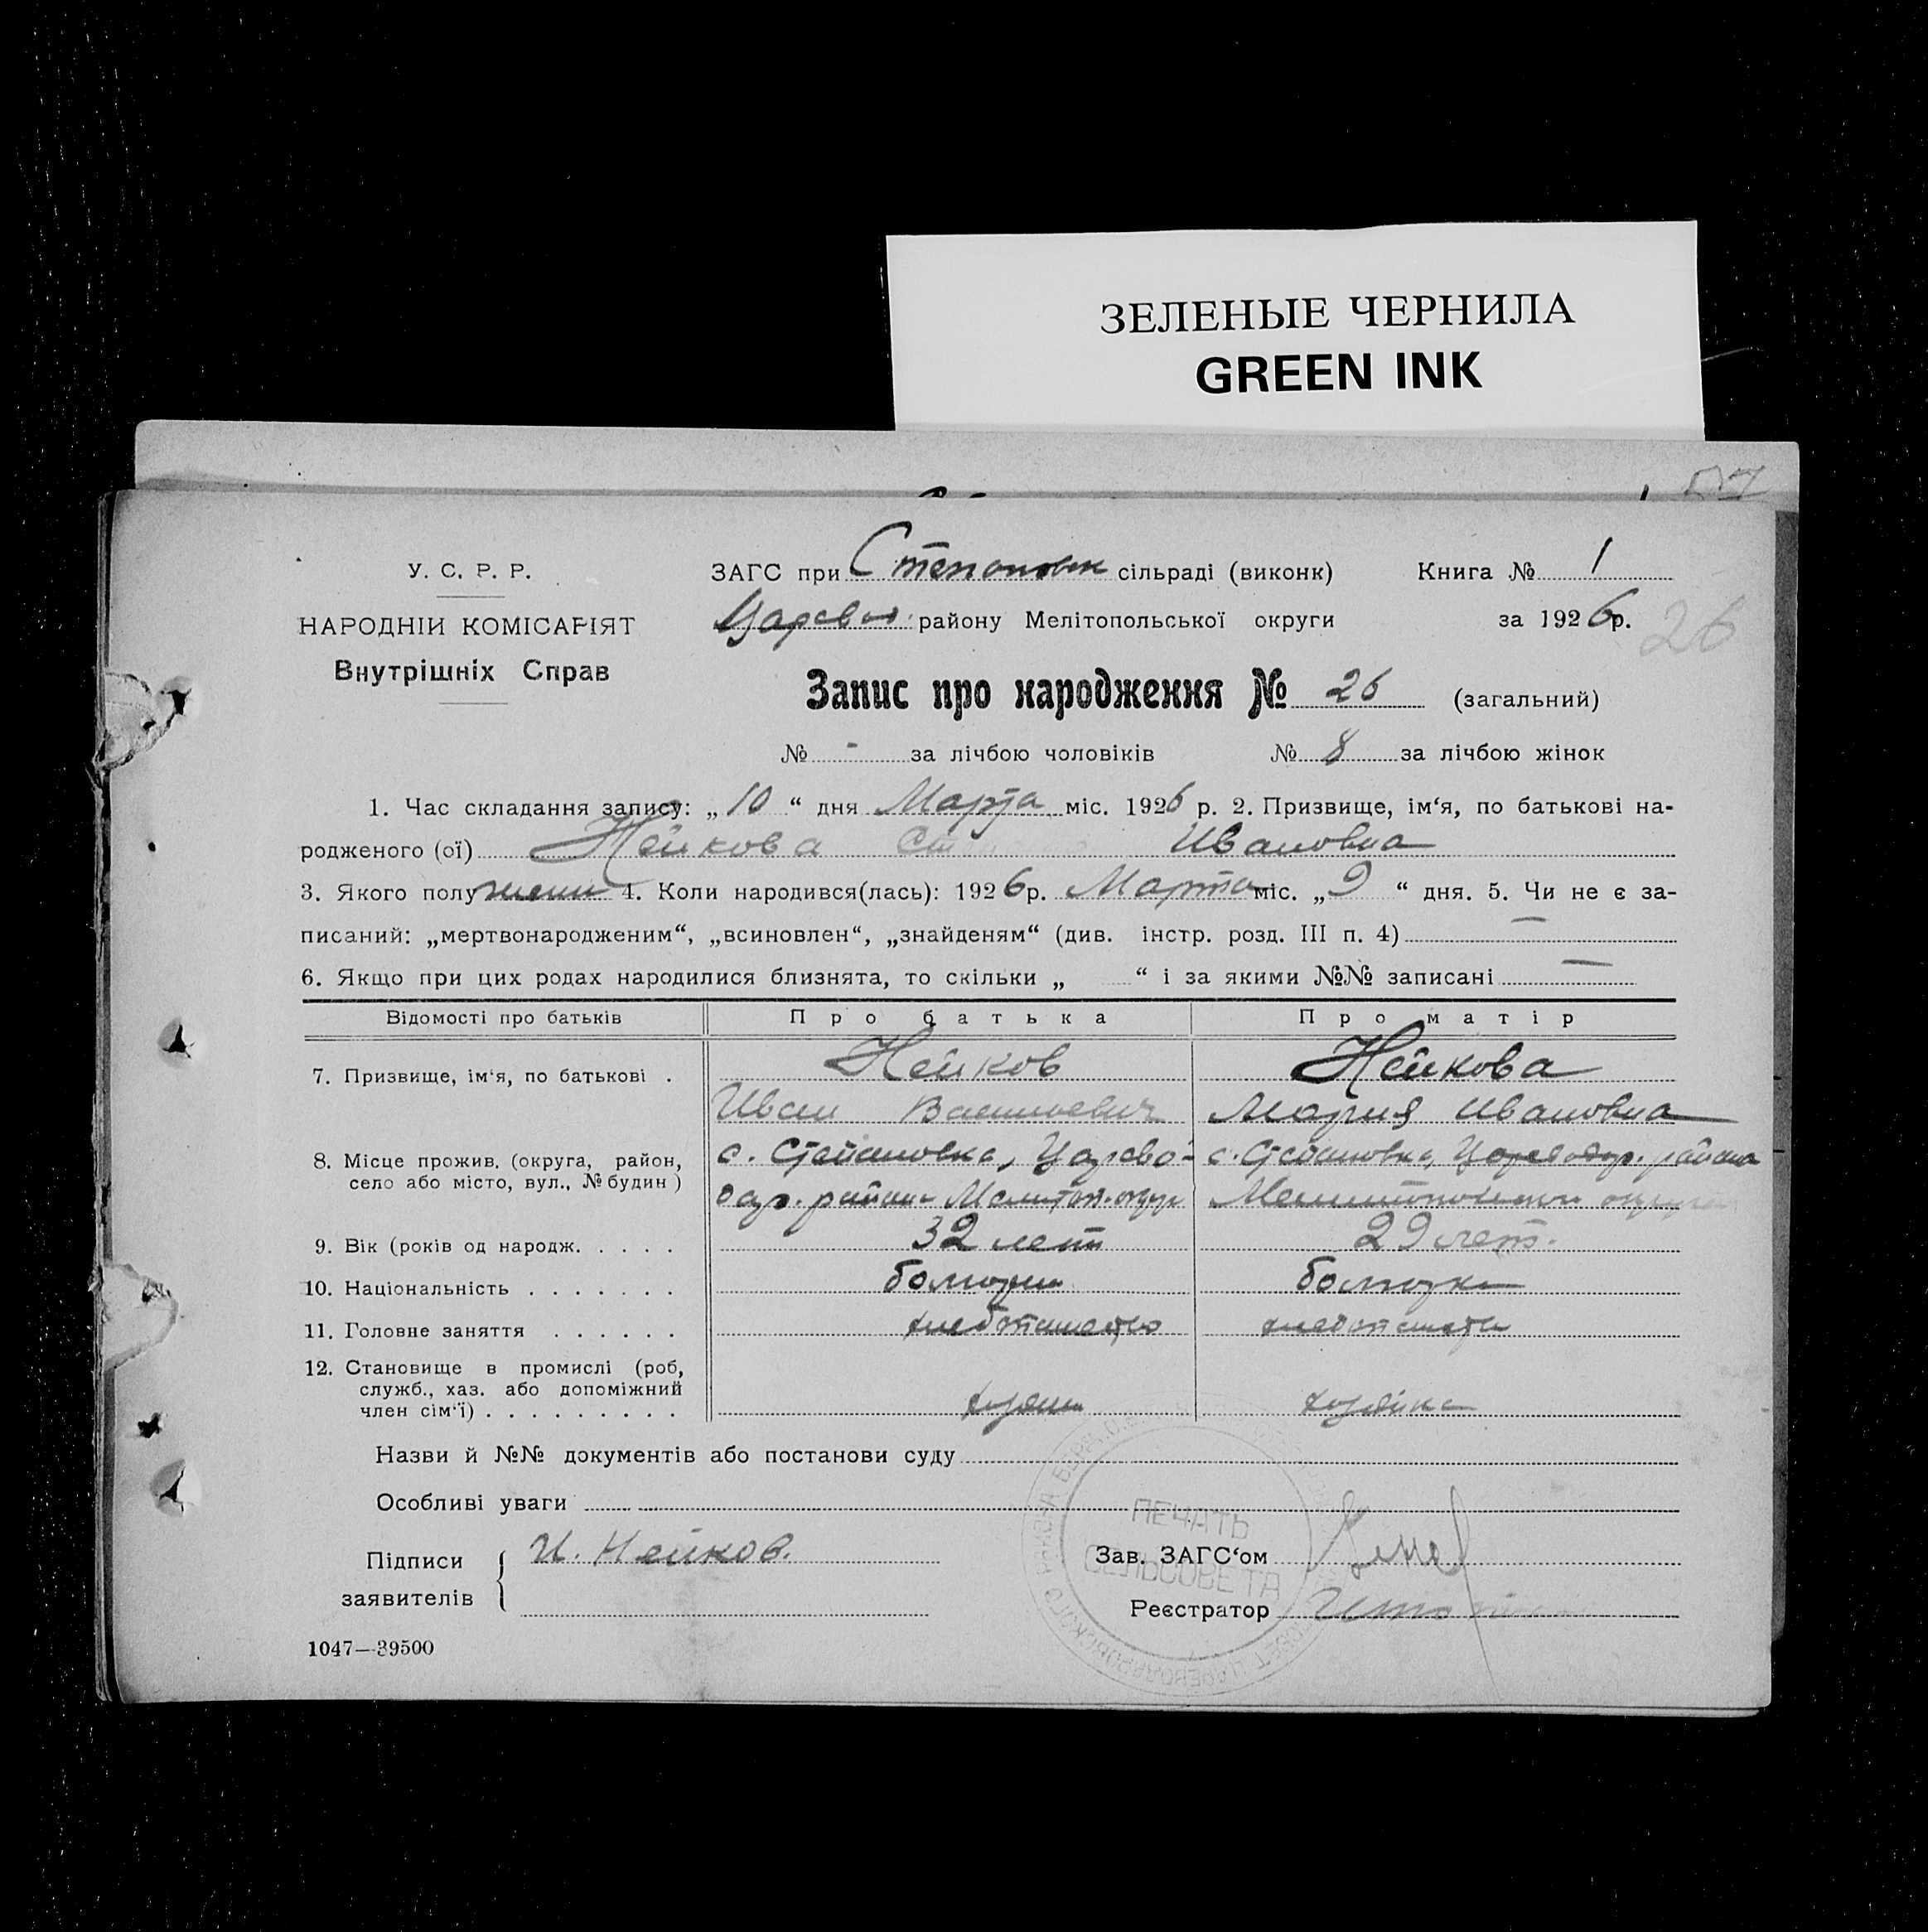 ЗЕЛЕНЫЕ ЧЕРНИЛА
GREEN INK
У. С. Р. Р.
НАРОДНІЙ КОМІСАРІЯТ
Внутрішніх Справ
ЗАГС при Степановск сільраді (виконк) Книга № 1
Царевод. району Мелітопольської округи за 1926р.
26
Запис про народження № 26 (загальний)
№ - за лічбою чоловіків № 8 за лічбою жінок
1. Час складання запису: „10“ дня Марта міс. 1926 р. 2. Призвище, ім‘я, по батькові на-
родженого (ої) Нейкова Ивановна
3. Якого полу женск 4. Коли народився(лась): 1926р. Марта міс. „9“ дня. 5. Чи не є за-
писаний: „мертвонародженим“, „всиновлен“, „знайденям“ (див. інстр. розд. III п. 4) —
6. Якщо при цих родах народилися близнята, то скільки „ “ і за якими №№ записані —
Відомості про батьків Про батька Про матір
7. Призвище, ім‘я, по батькові . Нейков Нейкова
Иван Васильевич Мария Ивановна
8. Місце прожив. (округа, район, село або місто, вул., № будин) с. Степановка, Царево- с. Степановка, Цареводар. района
дар. района Мелитоп. округ Мелитопольской округа
9. Вік (років од народж. . . . . 32 лет 29 лет.
10. Національність . . . . . . . болгарин болгарка
11. Головне заняття . . . . . . хлебопашество хлебопашество
12. Становище в промислі (роб,
служб., хаз. або допоміжний
член сім‘ї) . . . . . . . . . хозяин хозяйка
Назви й №№ документів або постанови суду
Особливі уваги
Підписи заявителів И. Нейков.
Зав. ЗАГС‘ом
Реєстратор
ПЕЧАТЬ
СЕЛЬСОВЕТА
1047—39500